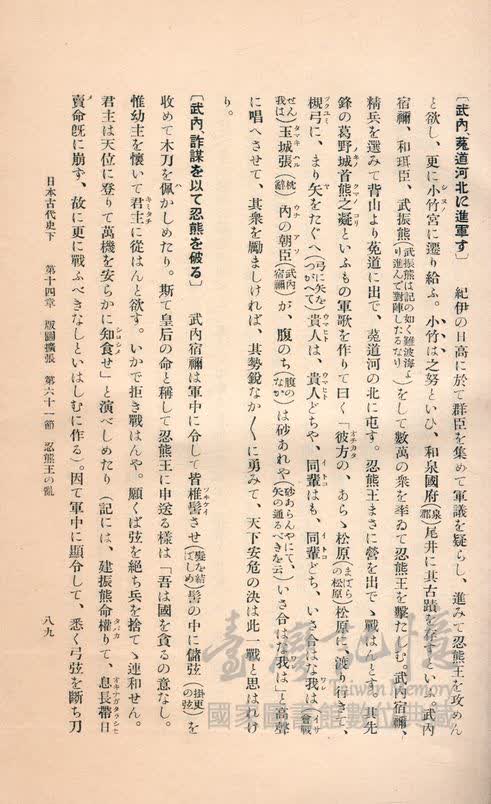 〔武內、菟道河北に進軍す〕　紀伊の日高に於て群臣を集めて軍議を疑らし、進みて忍熊王を攻めん
と欲し、更に小竹宮に遷り給ふ。小竹は之努といひ、和泉國府(泉郡)尾井に其古蹟を存すといふ。武內
宿禰、和珥臣、武振熊(武振熊は記の如く難波海より進んで對陣したるなり)をして數萬の衆を率ゐて忍熊王を擊たしむ。武內宿禰、
精兵を選みて背山より菟道に出で、菟道河の北に屯す。忍熊王まさに營を出でゝ戰はんとす。其先
鋒の葛野城首熊之凝といふもの軍歌を作りて曰く「彼方の、あらゝ松原(まばらの松原)松原に、渡り行きて、
槻弓に、まり矢をたぐへ(弓に矢をつがへて)貴人は、貴人どちや、同輩はも、同輩どち、いさ合はな我は(イサ會戰せん我は)
玉城張(枕辭)內の朝臣(武內宿禰)が、腹のち(腹のなか)は砂あれや(砂あらんやにて、矢の通るべきを云)いさ合はな我は」と高聲
に唱へさせて、其衆を勵ましければ、其勢銳なか〱に勇みて、天下安危の決は此一戰と思はれけ
り。
〔武內、詐謀を以て忍熊を破る〕　武內宿禰は軍中に令して皆椎髻させ(髮を結てしめ)髻の中に儲弦(掛更の弦)を
收めて木刀を佩かしめたり。斯て皇后の命と稱して忍熊王に申送る樣は「吾は國を貪るの意なし。
惟幼主を懷いて君主に從はんと欲す。いかで拒き戰はんや。願くば弦を絕ち兵を捨てゝ連和せん。
君主は天位に登りて萬機を安らかに知食せ」と演べしめたり（記には、建振熊命權りて、息長帶日
賣命旣に崩ず、故に更に戰ふべきなしといはしむに作る）。因て軍中に顯令して、悉く弓弦を斷ち刀
日本古代史下　第十四章　版圖擴張　第六十一節　忍熊王の亂　八九
臺灣記憶
Taiwan Memory
國家圖書館數位典藏